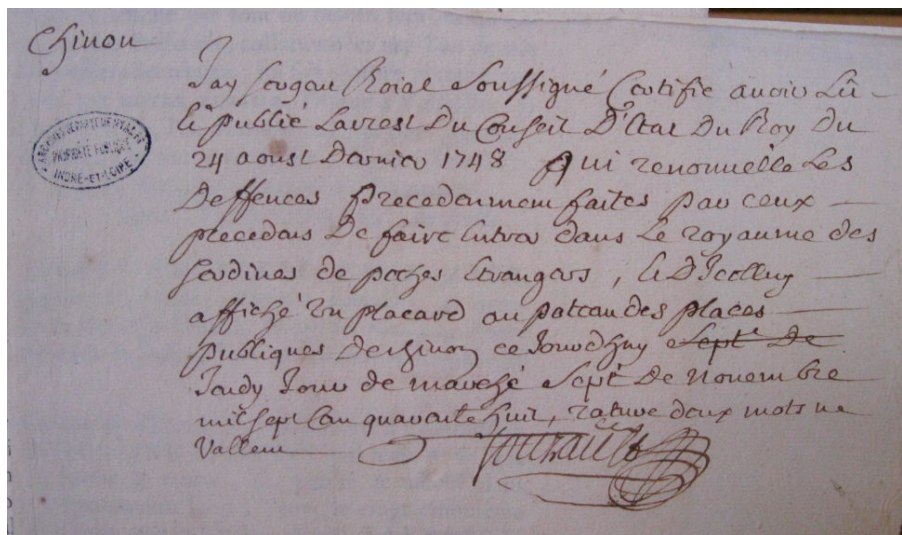 Chinon
Jay Sergent Roial Soussigné Certifie auoir Lû
& publié Larrest Du Conseil D'Etat Du Roy Du
24 aoust Dernier 1748 Qui renouuelle Les
Deffences precedemment faites par ceux
precedens De faire Entrer dans Le royaume des
Sardines de peches Etrangers, & D'Icelluy
affiché un placard au poteau des places
publiques De chinon ce Jourdhuy Sept De
Jeudy Jour de marché Sept De Nouembre
mil Sept Cen quarante huit, rature deux mots ne
Vallent
ARCHIVES DEPARTEMENTALES
PROPRIÉTÉ PUBLIQUE
INDRE-ET-LOIRE